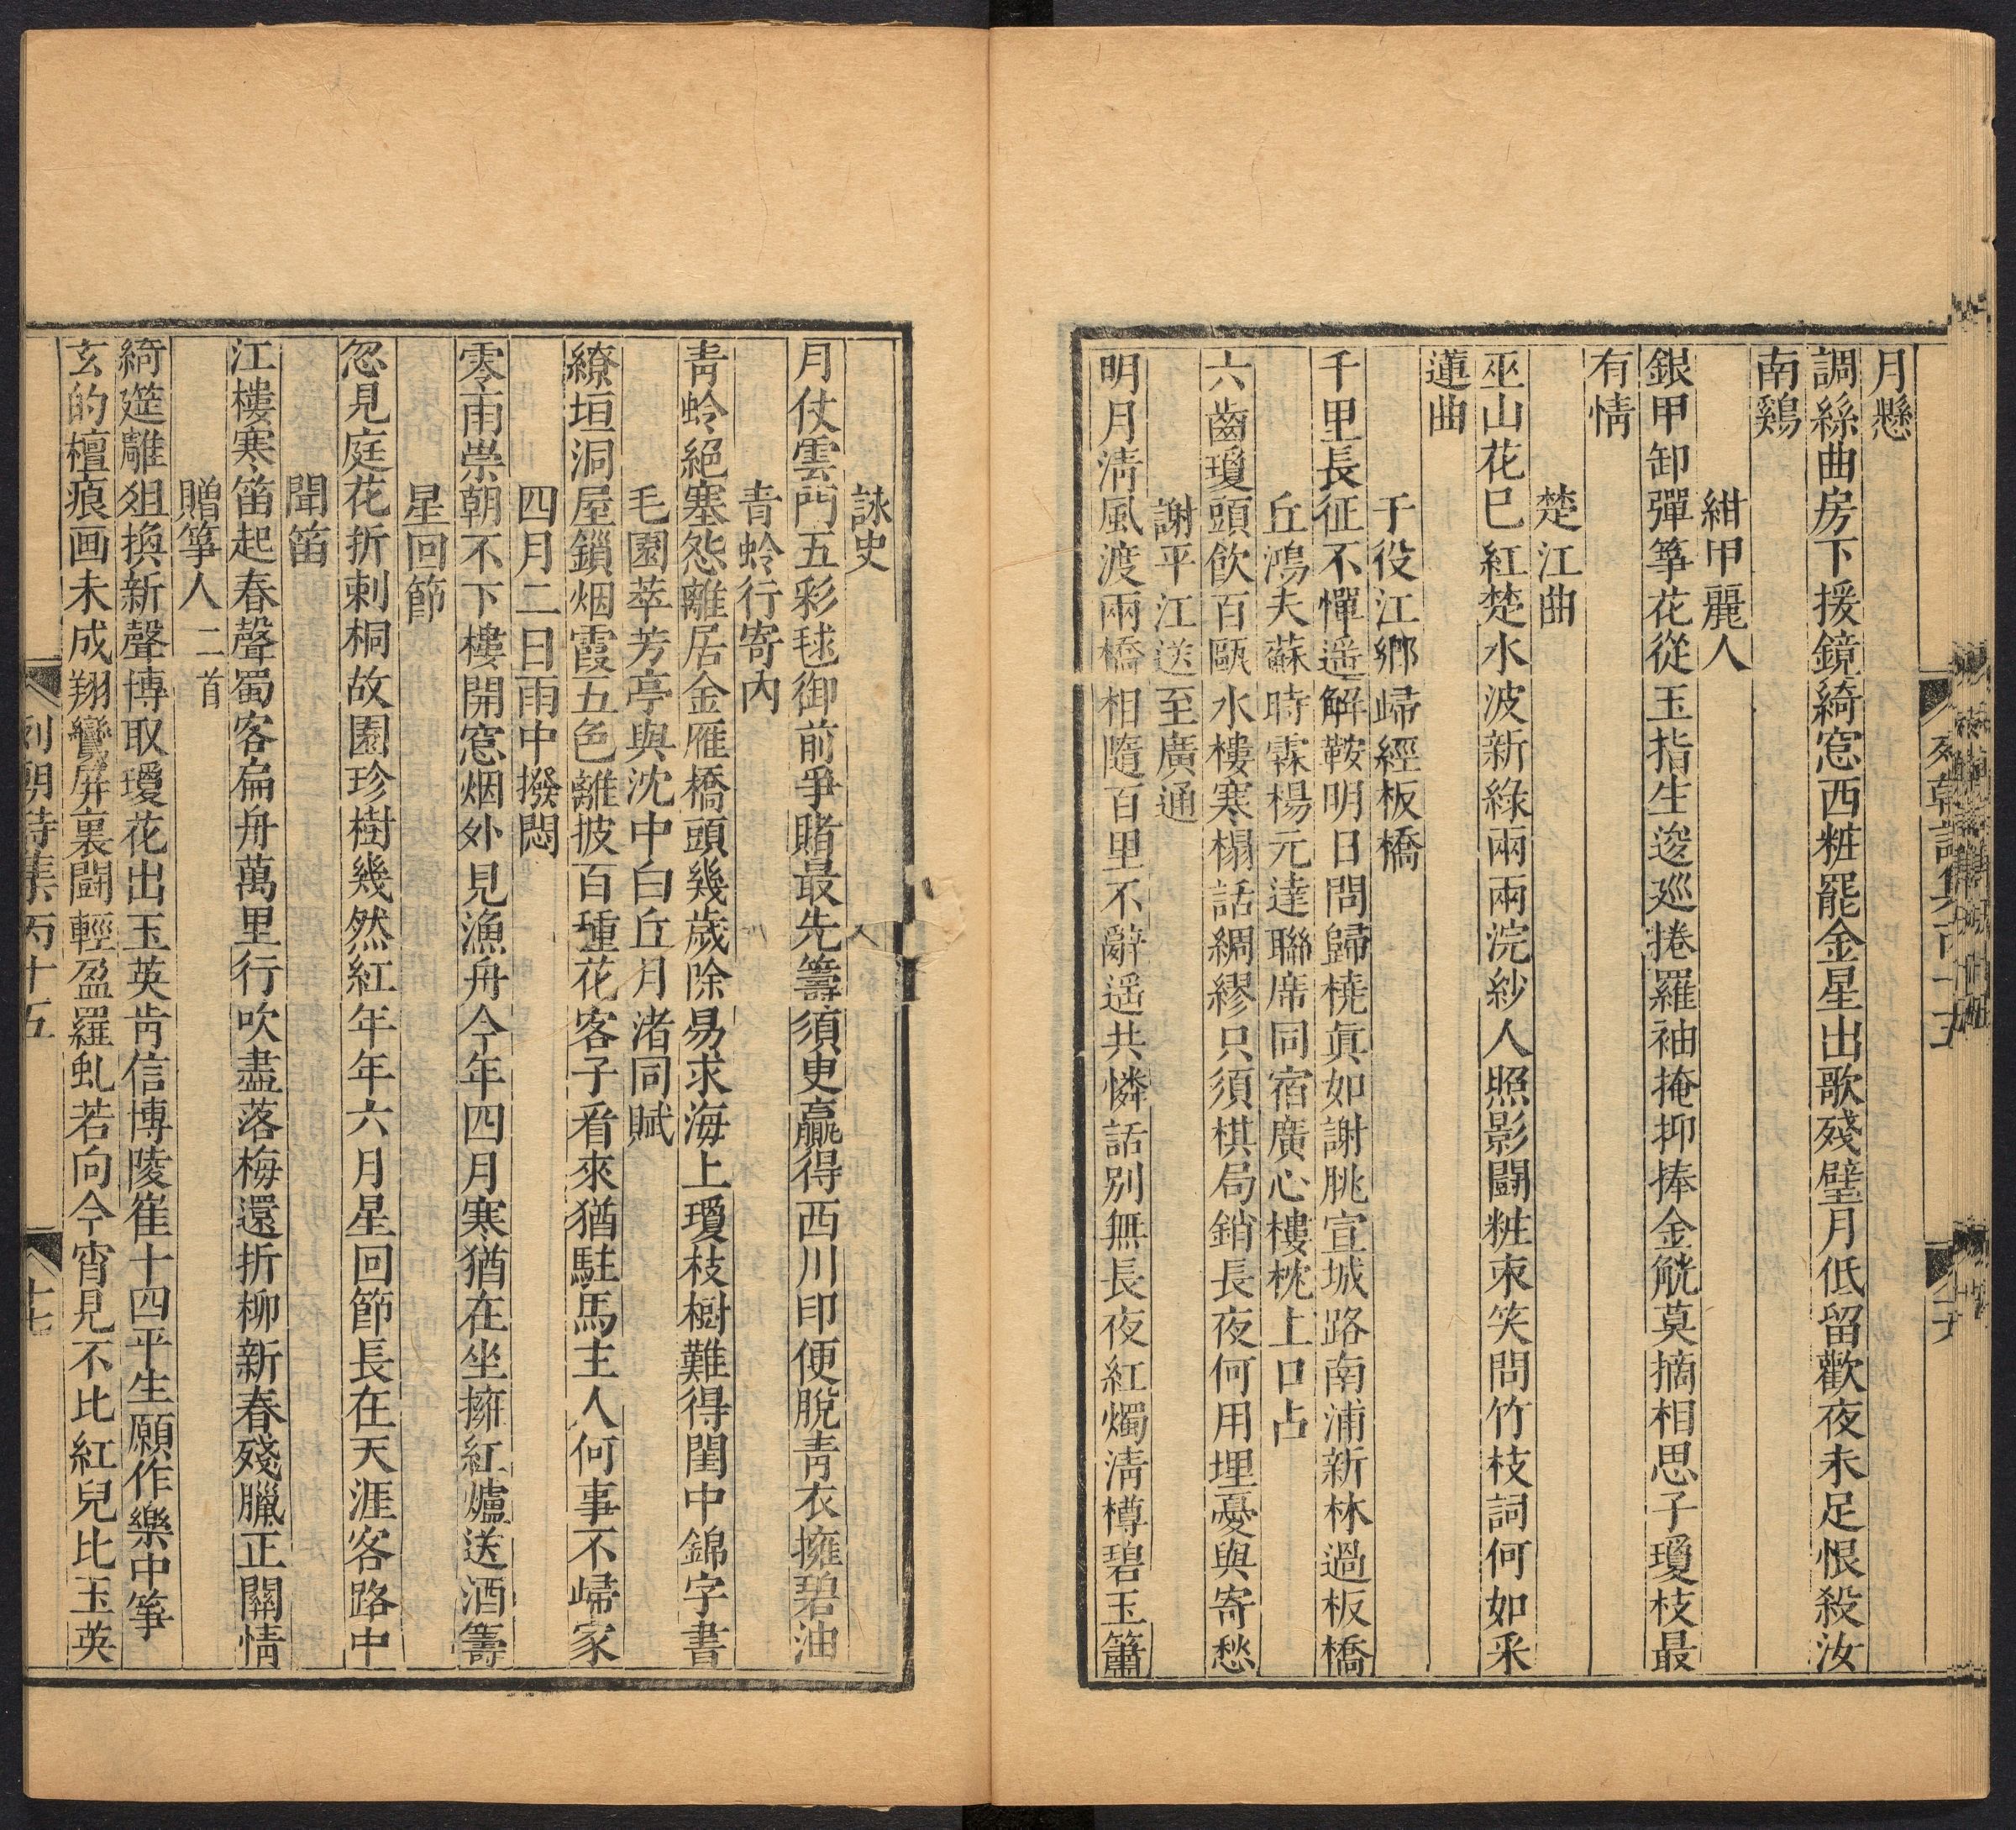 月懸
調絲曲房下援鏡綺窓西粧罷金星出歌殘璧月低留歡夜未足恨殺汝
南鷄
紺甲麗人
銀甲卸彈筝花從玉指生逡廵捲羅袖掩抑捧金觥莫摘相思子瓊枝最
有情
楚江曲
巫山花巳紅楚水波新綠兩兩浣紗人照影鬪粧朿笑問竹枝詞何如采
蓮曲
于役江鄉歸經板橋
千里長征不憚遥解鞍明日問歸橈眞如謝朓宣城路南浦新林過板橋
丘鴻夫蘇時霖楊元達聯席同宿廣心樓枕上口占
六齒瓊頭飲百甌水樓寒榻話綢繆只須棋局銷長夜何用埋憂與寄愁
謝平江送至廣通
明月淸風渡兩橋相隨百里不辭遥共憐話別無長夜紅燭淸樽碧玉簫
列朝詩集丙十五
詠史
月仗雲門五彩毬御前爭賭最先籌須更贏得西川印便脫靑衣擁碧油
青蛉行寄內
靑蛉絕塞怨離居金雁橋頭幾歲除易求海上瓊枝樹難得閨中錦字書
毛園萃芳亭與沈中白丘月渚同賦
繚垣洞屋鎻烟霞五色離披百種花客子看來猶駐馬主人何事不歸家
四月二日雨中撥悶
零雨崇朝不下樓開窓烟外見漁舟今年四月寒猶在坐擁紅爐送酒籌
星回節
忽見庭花折刺桐故園珍樹幾然紅年年六月星回節長在天涯客路中
聞笛
江樓寒笛起春聲蜀客扁舟萬里行吹盡落梅還折柳新春殘臘正關情
贈筝人 二首
綺筵雕俎換新聲博取瓊花出玉英肯信博陵崔十四平生願作樂中筝
玄的檀痕画未成翔鸞屏裏鬪輕盈羅虬若向今宵見不比紅兒比玉英
列朝詩集丙十五
十七